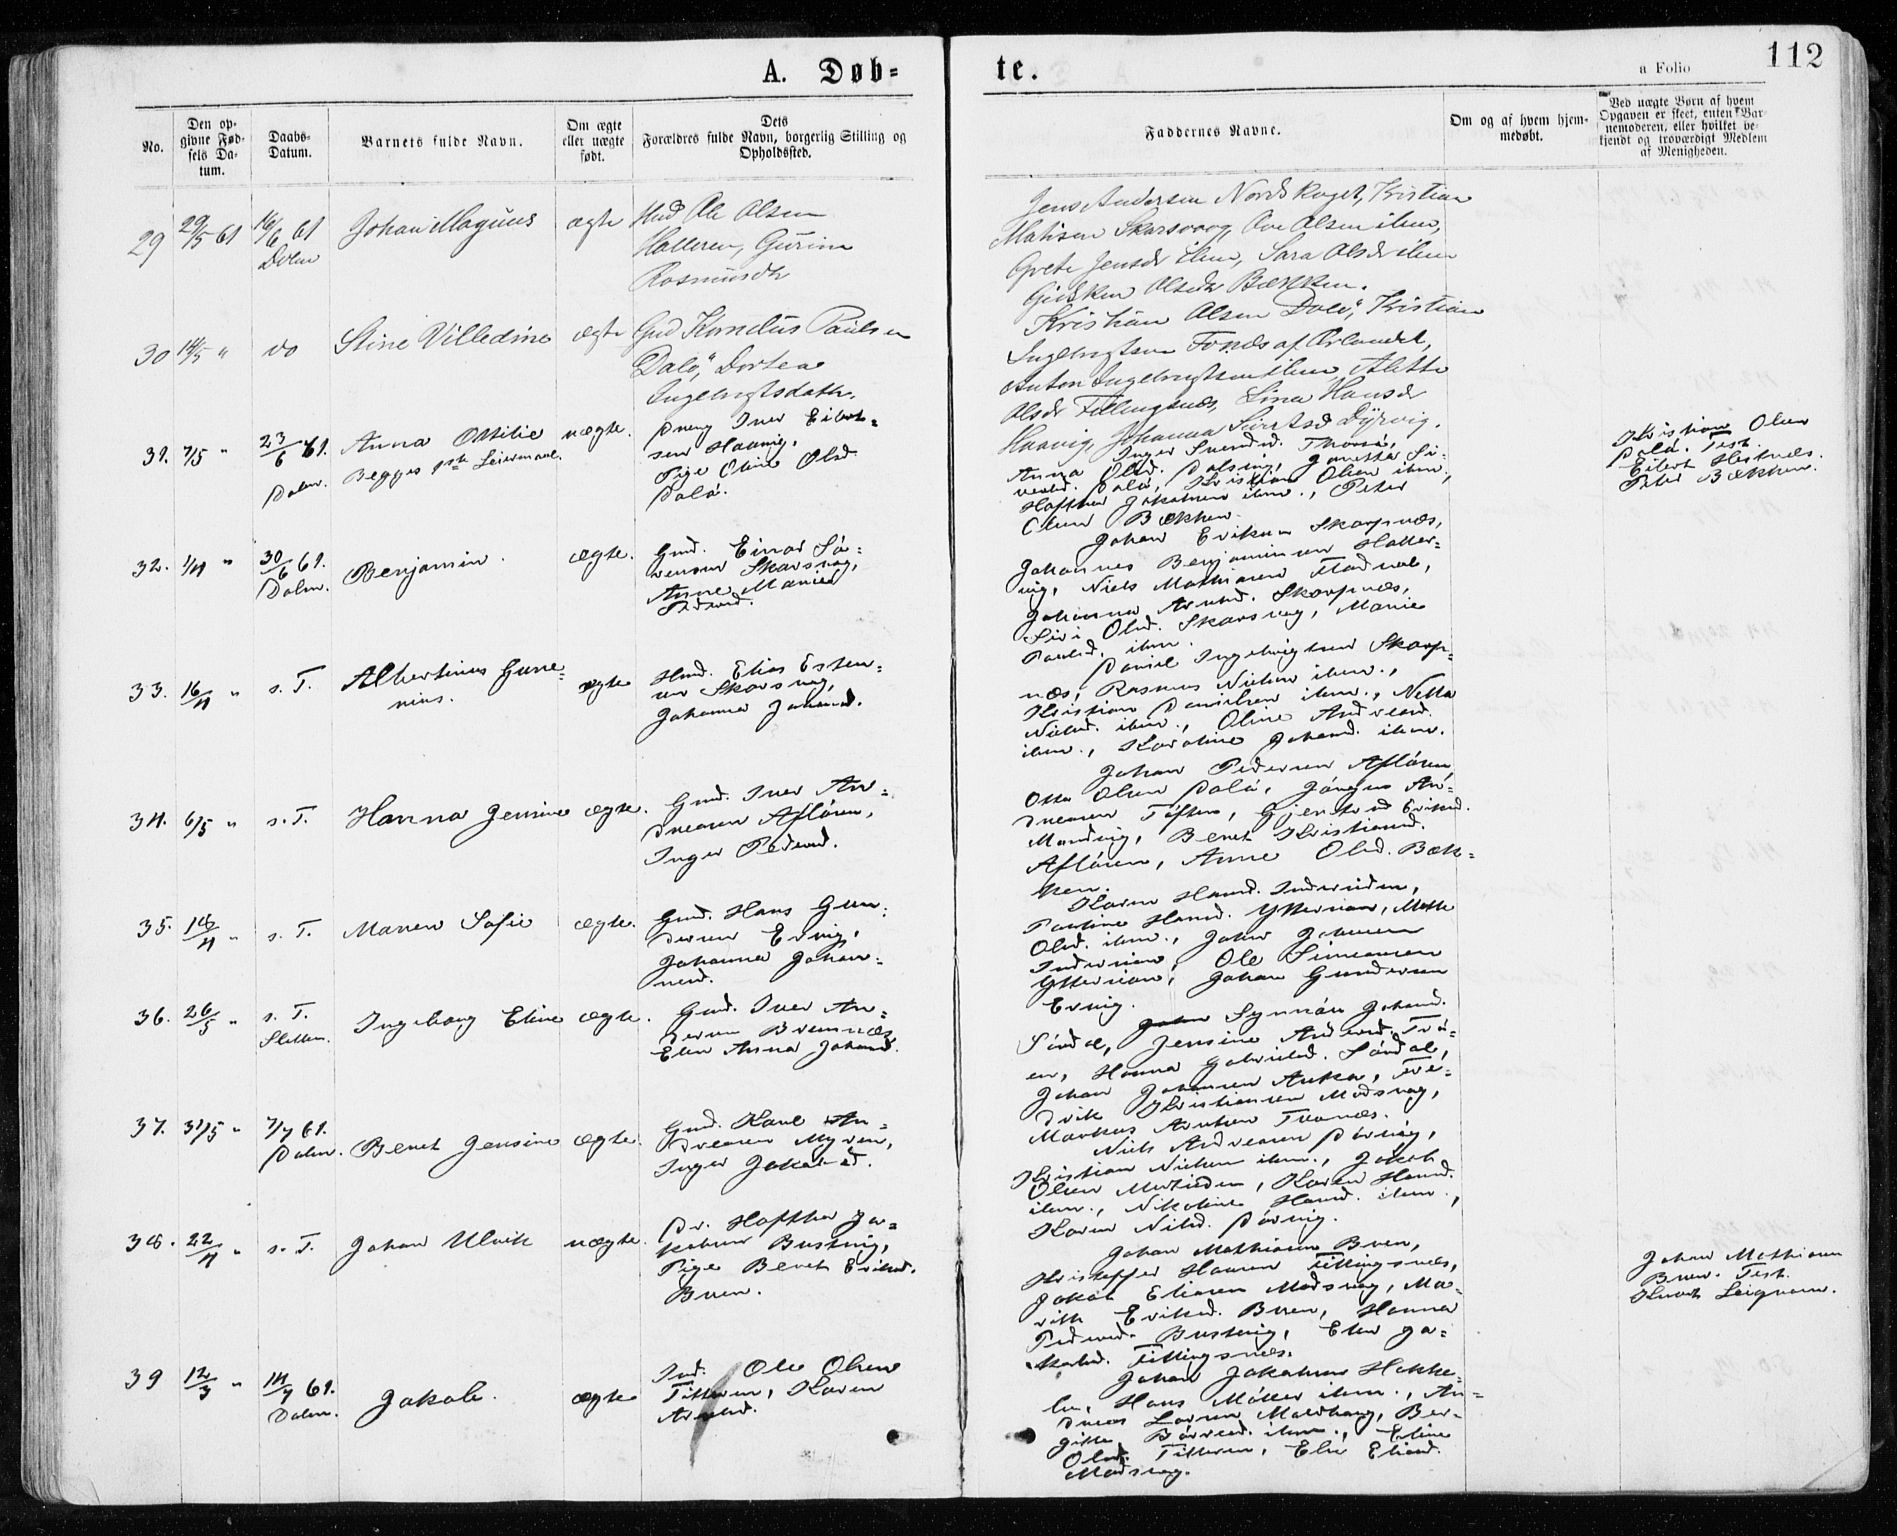 112
A. Døb=
te.
a Folio
No.
Den op-
givne Fød-
sels Da-
tum.
Daabs-
Datum.
Barnets fulde Navn.
Om ægte
eller uægte
født.
Dets
Forældres fulde Navn, borgerlig Stilling og
Opholdssted.
Faddernes Navne.
Om og af hvem hjem-
medøbt.
Ved uægte Børn af hvem
Opgaven er skeet, enten Bar-
nemoderen, eller hvilket be-
kjendt og troværdigt Medlem
af Menigheden.
29 29/5 61 16/6 61 Johan Magnus ægte Hud Ole Olsen
Dolm
Halleren, Gurine
Rasmusdtr
Jens Andersen Nordskaget, Kristian
Matisen Skarsvaag, Ove Olsen ibm,
Grete Jensdr ibm, Sara Olsdr ibm
Gidsken Olsdtr Bækken.
30 14/5 " do Stine Villedine ægte Gmd Kornelius Paulsen
Dalø, Dortea
Ingebrigtsdattr.
Kristian Olsen Dalø, Kristian
Ingebrigtsen Fonds af Ørlandet,
Anton Ingebrigtsen ibm, Alette
Olsdr Fillingsnæs, Lina Hansdr
Haavig, Johanna Dyrvig.
31. 7/5 " 23/6 61. Anna Ottilie uægte. Dreng Iver Eibert=
Dolm. Begges 1ste Leiermaal.
sen Haavig,
Pige Oline Olsd
Dalø.
Inger Svendsd.
Anna Olsd. Dalsvig, Janetta Si-
vertsd. Dalø, Kristian Olsen ibm.
Hofther Jakobsen ibm., Peter
Olsen Bækken.
Kristian Olsen
Dalø. Test.
Eibert Hestnæs.
Peter Bækken.
32. 1/4 " 30/6 61. Benjamin. ægte. Gmd. Einar Sø=
Dolm.
rensen Skarsvag,
Anne Marie
Pedersd.
Johan Eriksen Skarpnæs,
Johannes Benjaminsen Hatter=
vig, Niels Mathiasen Fladval,
Johanna Arntsd. Skarpnæs,
Siri Olsd. Skarsvag, Marie
Paulsd. ibm.
33. 16/4 " s. T. Albertinus Gune= ægte Hmd. Elias Esten=
nius.
sen Skarsvag,
Johanna Johansd.
Daniel Ingebrigtsen Skarp=
næs, Rasmus Nielsen ibm.,
Kristian Danielsen ibm., Netta
Nielsd. ibm., Oline Andreasd.
ibm., Karoline Johansd. ibm.
34. 6/5 " s. T. Hanna Jensine ægte. Gmd. Iver An=
dreasen Afløren,
Inger Pedersd.
Johan Pedersen Afløren,
Otto Olsen Dalø, Jørgen An=
dreasen Tuften, Gjertrud Eriksd.
Mandvig, Beret Kristiansd.
Afløren, Anne Olsd. Bæk=
ken.
35. 18/4 " s. T. Maren Sofie ægte. Gmd. Hans Gun=
dersen Ervig,
Johanna Johan=
nesd.
Karen Hansd. Inderriden,
Pauline Hansd. Ytterrian, Mette
Olsd. ibm., Johan Johansen
Inderrian, Ole Simonsen
Ytterrian, Johan Gundersen
Ervig.
36. 26/5 " s. T. Ingeborg Eline ægte. Gmd. Iver An=
Sletten.
dersen Bremnæs
Elen Anna Johansd.
Synnøv Johansd.
Sørdal, Jensine Andersd. Trø=
en, Hanna Gabrielsd. Sørdal,
Johan Johansen Aukan, Fre=
drik Kristiansen Madsvag,
Markus Arntsen Tranæs.
37. 31/5 " 7/7 61. Beret Jensine ægte. Gmd. Karl An=
Dolm.
dreasen Myren,
Inger Jakobsd.
Niels Andreasen Dørvig,
Kristian Nielsen ibm., Jakob
Olsen , Karen Hansd.
ibm., Nikoline Hansd. ibm.,
Karen Nilsd. Dørvig.
38. 22/4 " s. T. Johan Ulrik uægte. Dr. Hofther Ja=
kobsen Bustvig,
Pige Beret Eriksd.
Buen.
Johan Mathiasen Buen,
Kristoffer Hansen Fillingsnæs,
Jakob Eliasen Madsvag, Ma=
rith Eriksd. Buen, Hanna
Pedersd. Bustvig, Elen Ja=
kobsd. Fillingsnæs.
Johan Mathiasen
Buen. Test.
Knut Leigvam.
39 12/3 " 14/7 61. Jakob. ægte Ind. Ole Olsen
Dolm.
Titteren, Karen
Arntsd.
Johan Jakobsen Hokke=
len, Hans Møller ibm., An=
dreas Larsen Maldhaug, Ber=
gitte Børresd. ibm., Eline
Olsd. Titteren, Elen Eliasd.
Madsvag.